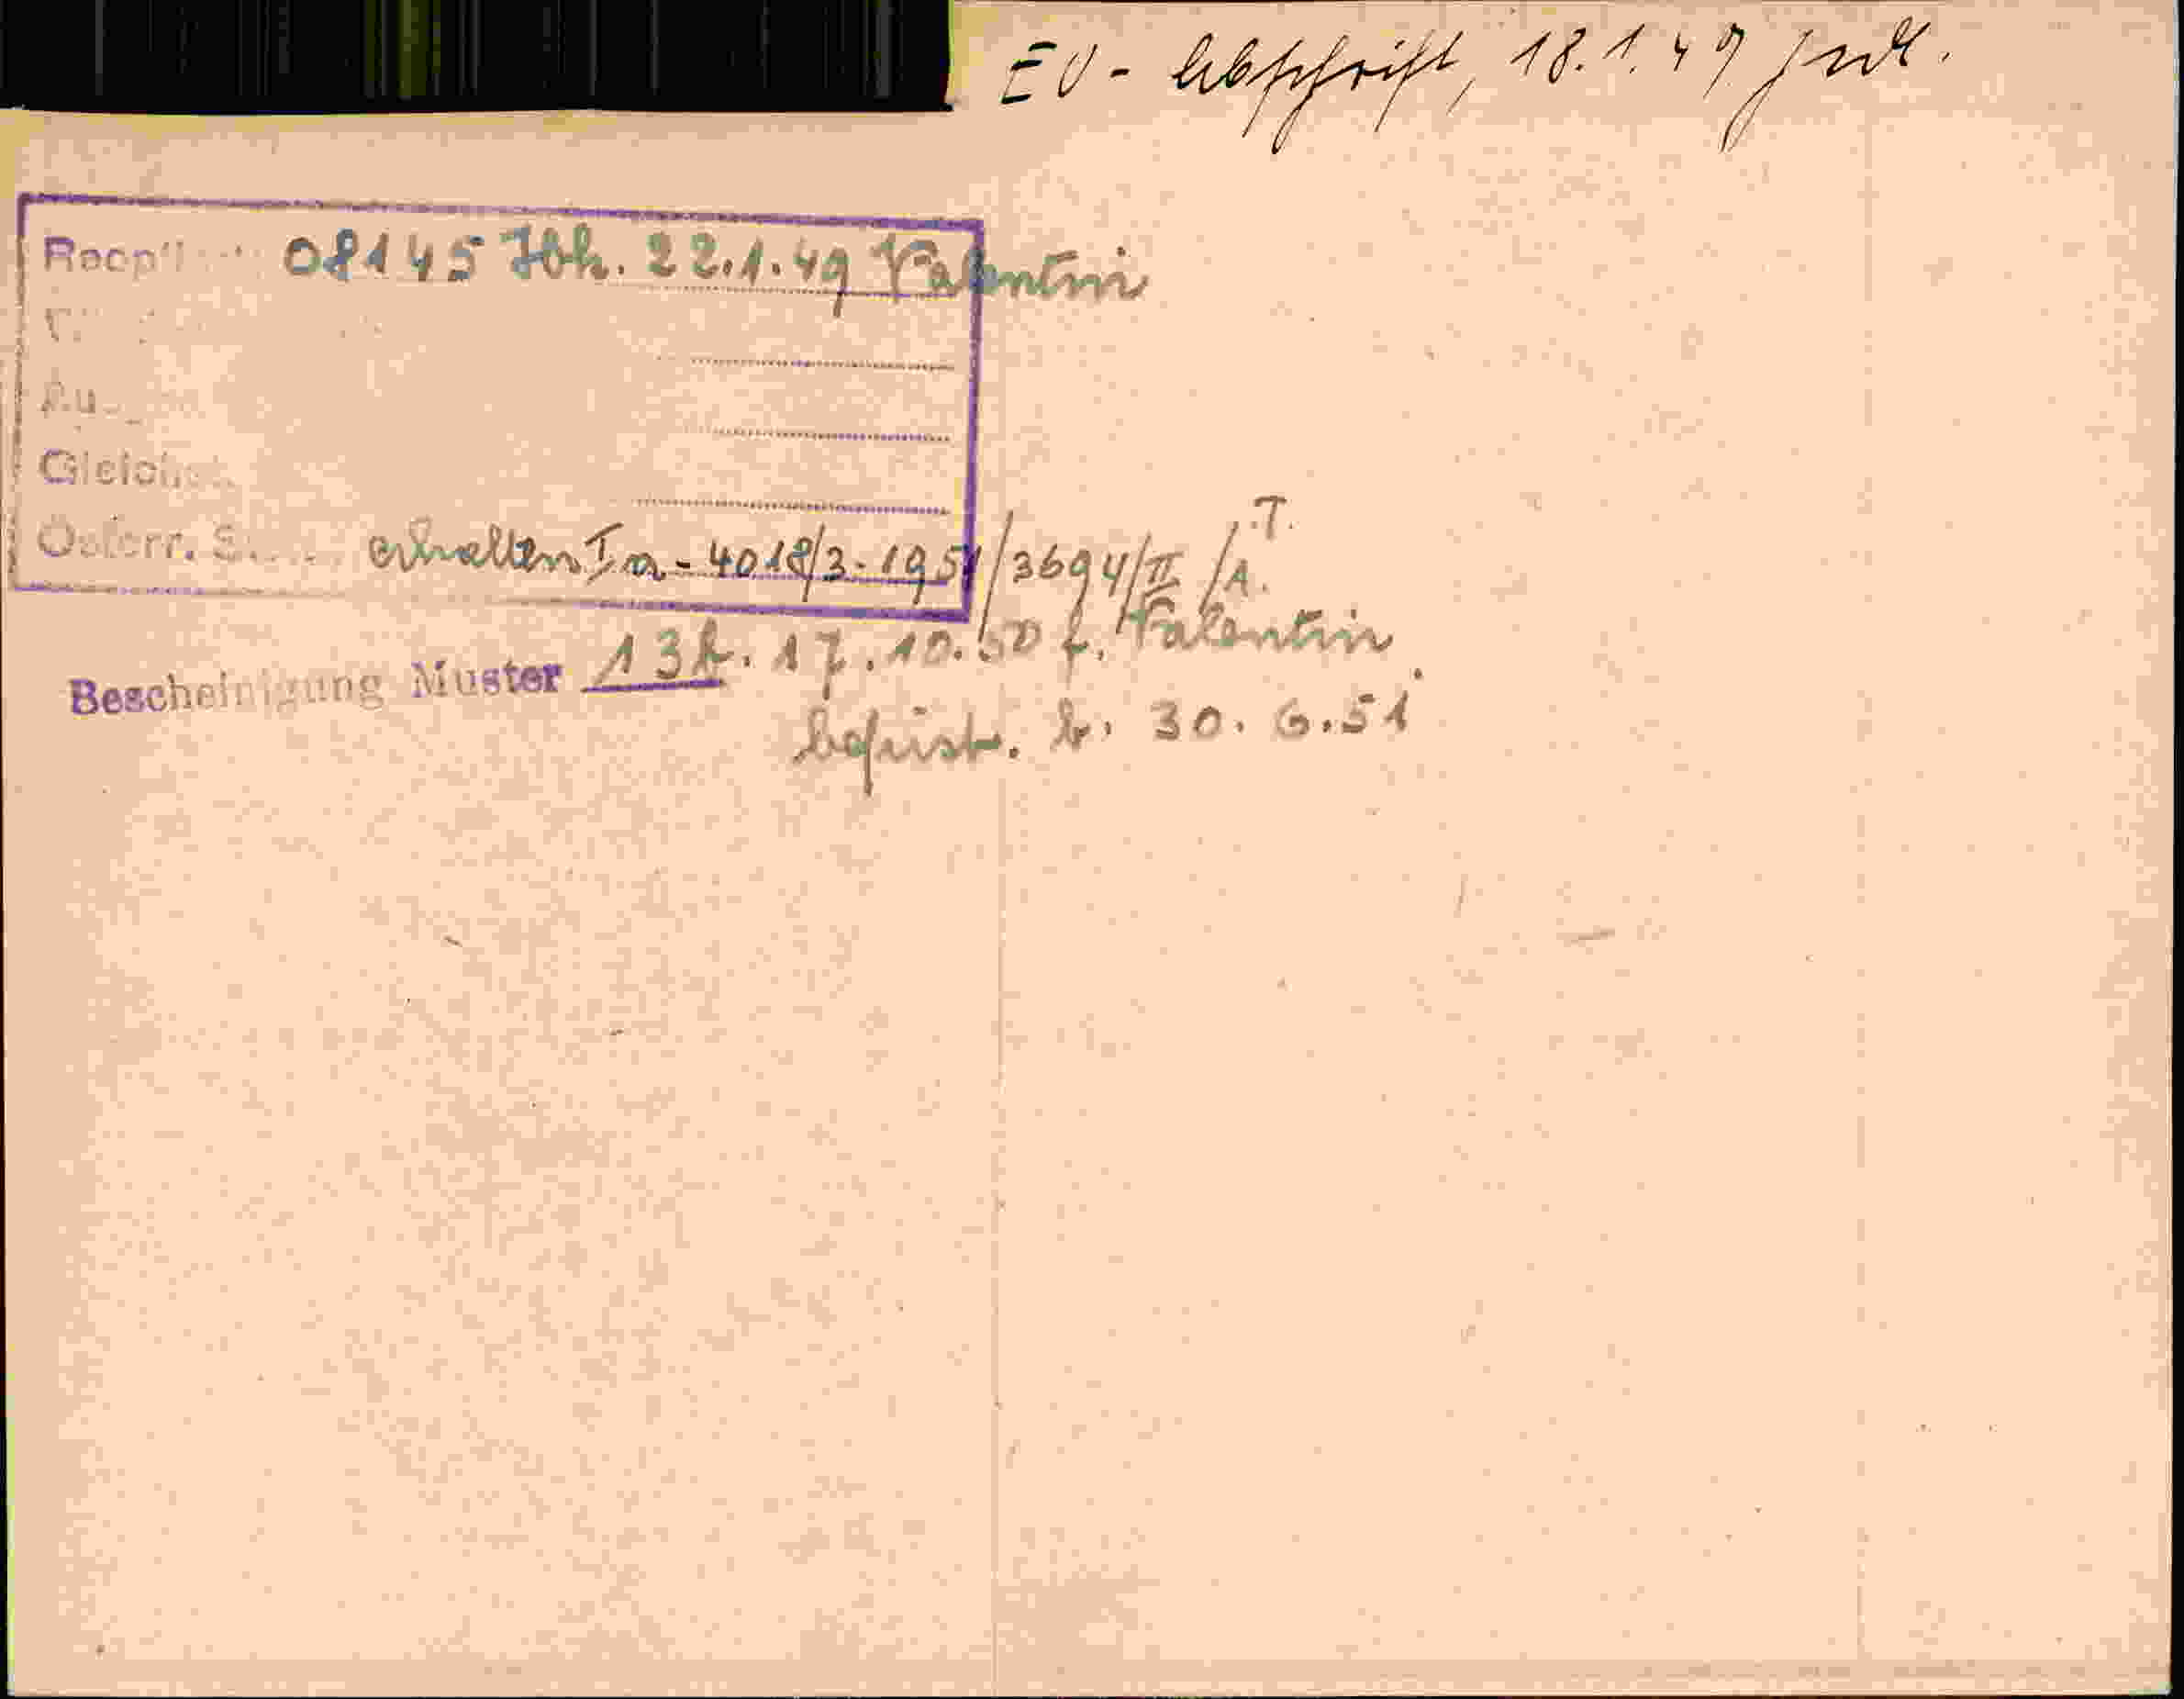 EU - Abschrift, 18.1.49
08145 Jbk. 22.1.49 Valentin
Österr. S. erhalten I a - 4018/3 - 1951/3694/II/A.T.
Bescheinigung Muster 13k. 17.10.50 f. Valentin
befrist. b. 30.6.51